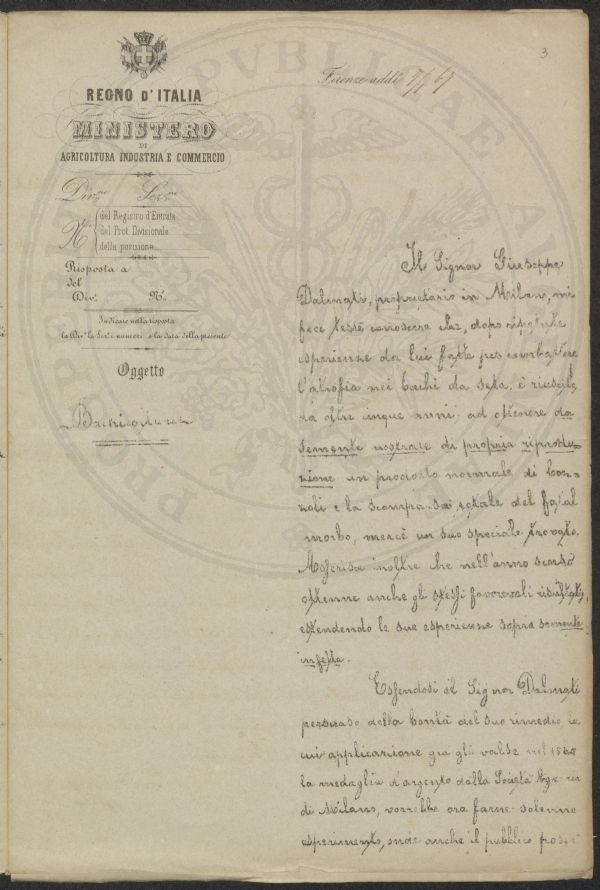 3
Firenze addì
REGNO D'ITALIA
MINISTERO
DI
AGRICOLTURA INDUSTRIA E COMMERCIO
Div.ne Sez.ne
N.
del Registro d'Entrata
del Prot. Divisionale
della posizione
Risposta a
del
Div. N.
Indicare nella risposta
la Div.e la Sez.e numeri e la data della presente
Oggetto
Bachicoltura
Il Signor Giuseppe
proprietario in Milano, mi
fece testè conoscere che, dopo ripetute
esperienze da lui fatte per combattere
l'atrofia nei bachi da seta, è riuscito
da oltre cinque anni ad ottenere da
semente nostrale di propria riprodu-
zione un prodotto normale di boz-
zoli e la scomparsa totale del fatal
morbo, mercè un suo speciale trovato.
inoltre che nell'anno scorso
ottenne anche gli stessi favorevoli risultati,
estendendo le sue esperienze sopra semente
infetta.
Essendosi il Signor
persuaso della bontà del suo rimedio, la
cui applicazione già gli valse nel
la medaglia d'argento dalla Società
di Milano, vorrebbe ora farne solenne
esperimento, onde anche il pubblico